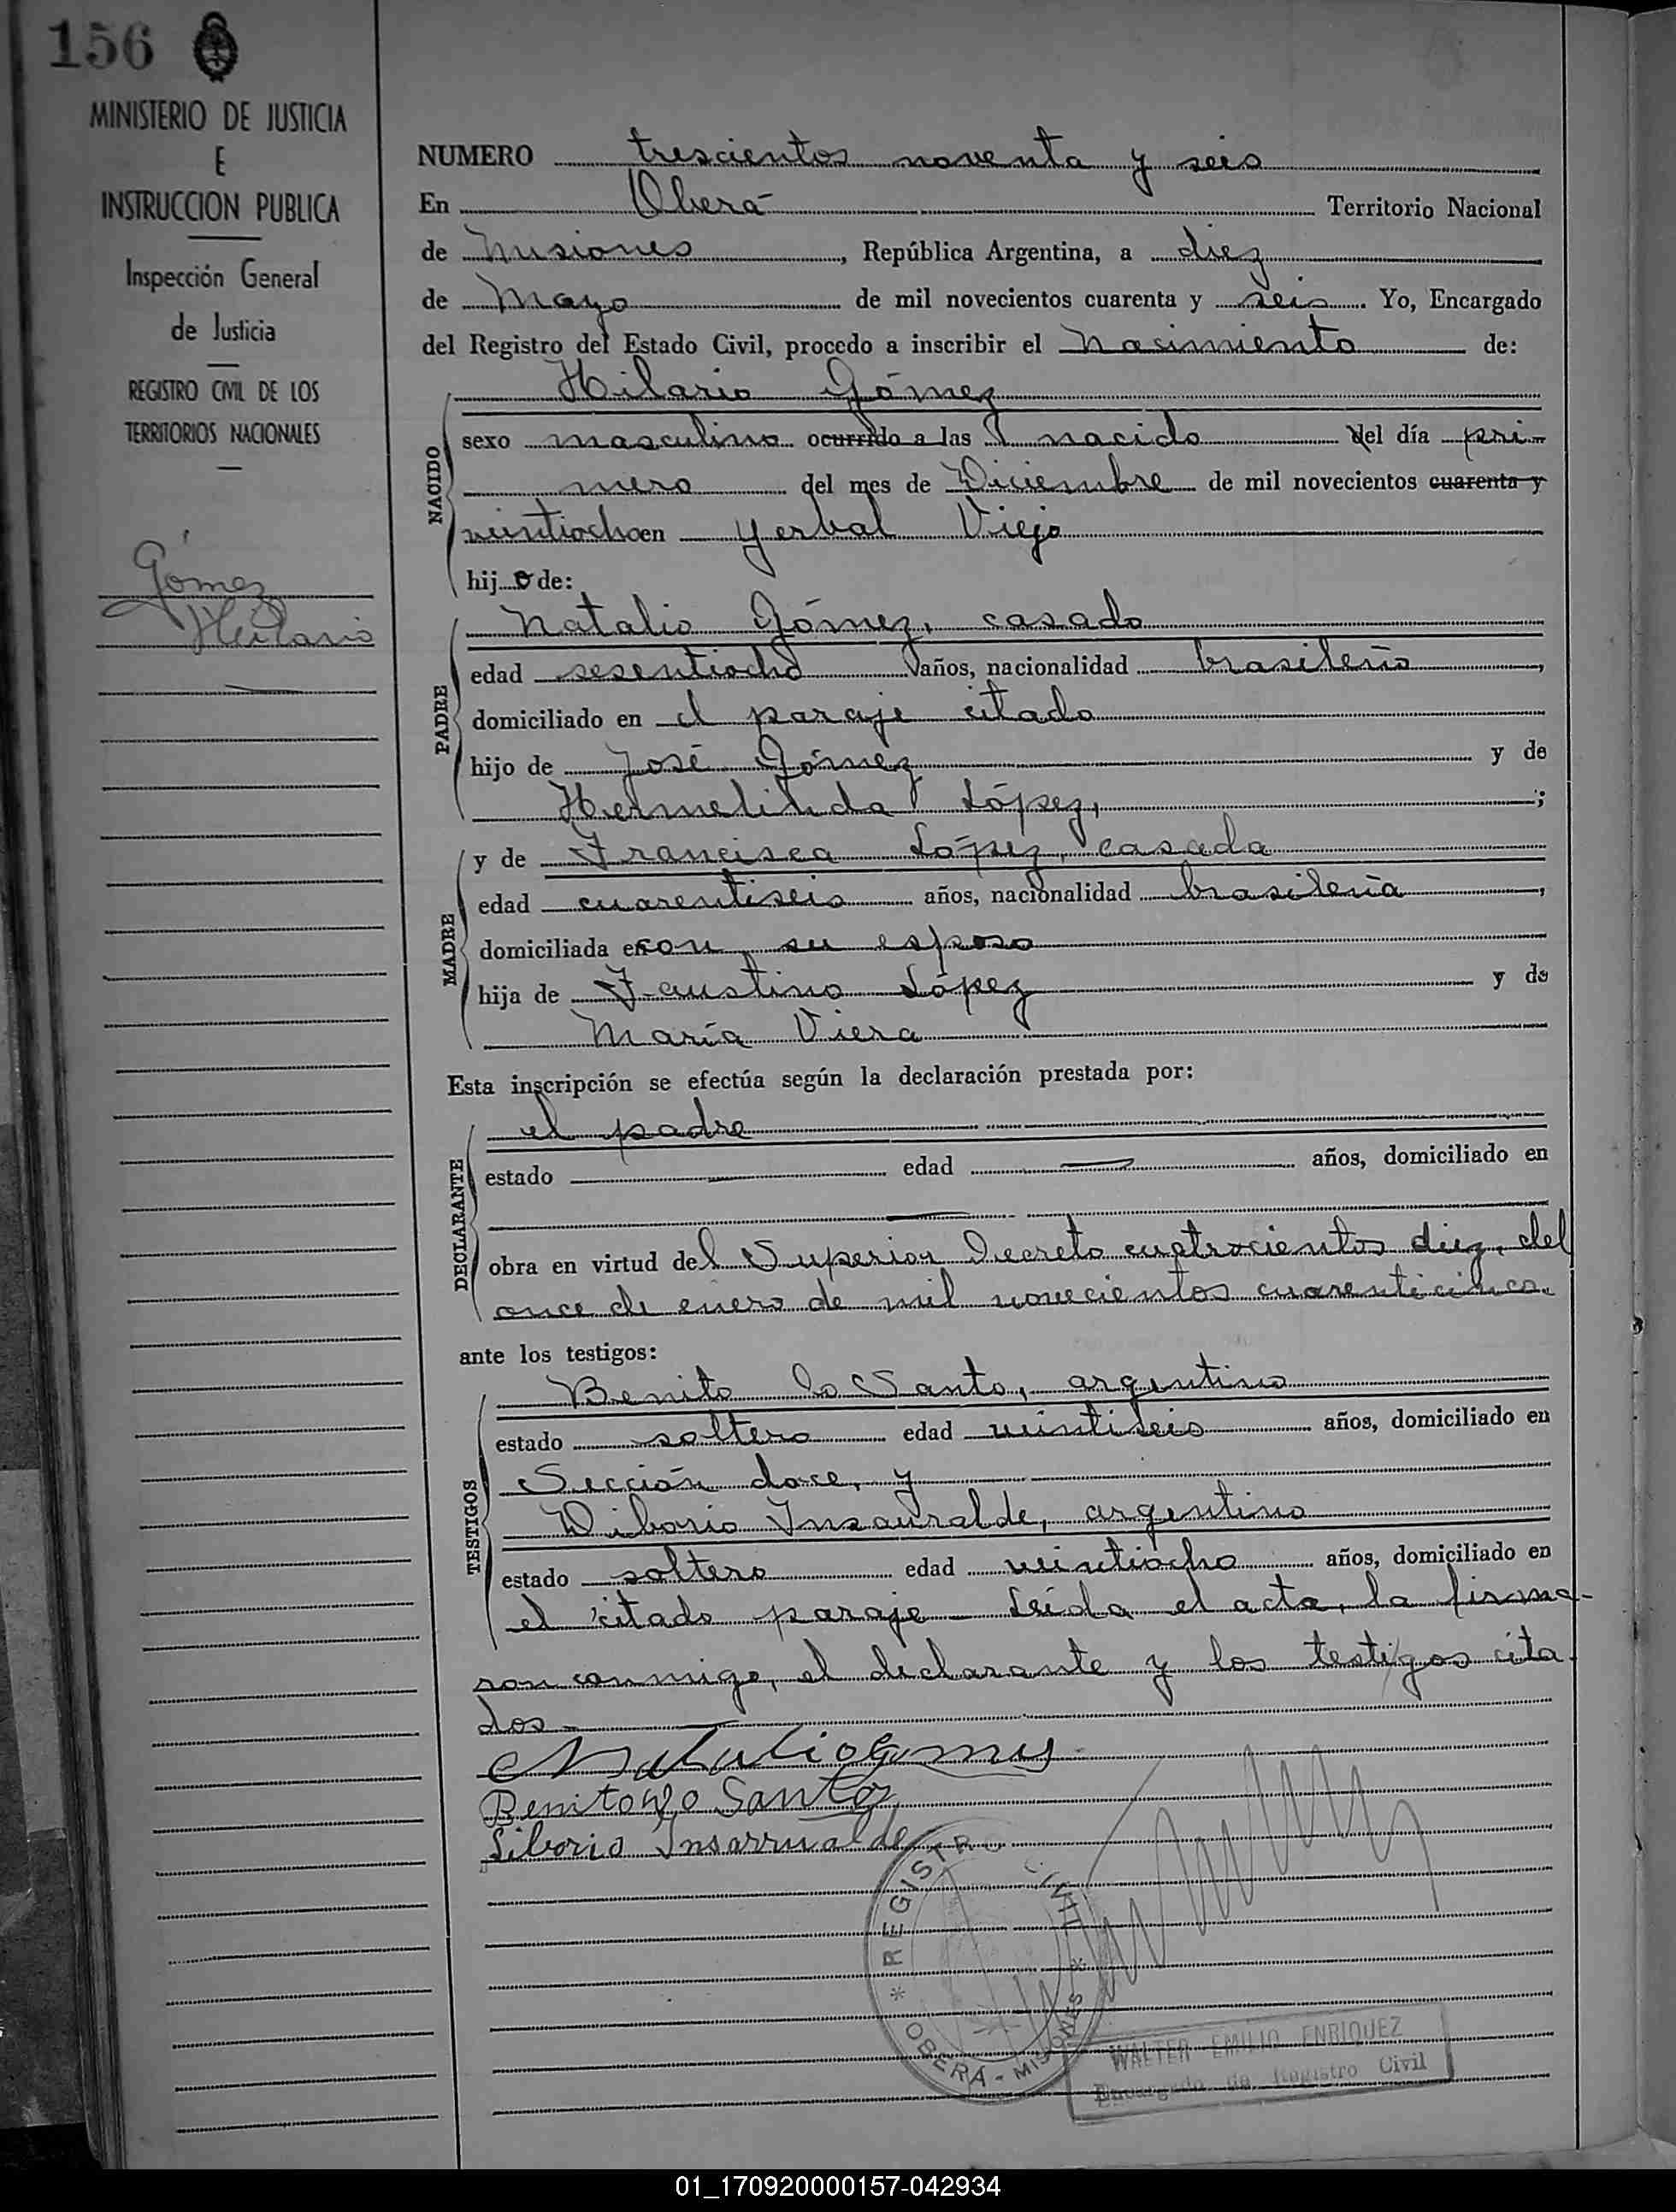 156
MINISTERIO DE JUSTICIA
E
INSTRUCCION PUBLICA
Inspección General
de Justicia
REGISTRO CIVIL DE LOS
TERRITORIOS NACIONALES
Gómez
Hilario
NUMERO trescientos noventa y seis
En Oberá Territorio Nacional
de Misiones, República Argentina, a diez
de Mayo de mil novecientos cuarenta y seis. Yo, Encargado
del Registro del Estado Civil, procedo a inscribir el nacimiento de:
NACIDO
Hilario Gómez
sexo masculino ocurrido a las nacido del día pri-
mero del mes de Diciembre de mil novecientos cuarenta y
veintiocho en Yerbal Viejo
hijo de:
PADRE
Natalio Gómez, casado
edad sesentiocho años, nacionalidad brasileño,
domiciliado en el paraje citado
hijo de José Gómez y de
Hermelinda López, ;
MADRE
y de Francisca López, casada
edad cuarentiseis años, nacionalidad brasileña,
domiciliada en con su esposo
hija de Faustino López y de
María Viera
Esta inscripción se efectúa según la declaración prestada por:
DECLARANTE
el padre
estado — edad — años, domiciliado en
—
obra en virtud del Superior Decreto cuatrocientos diez, del
once de enero de mil novecientos cuarenticinco.
ante los testigos:
TESTIGOS
Benito lo Santo, argentino
estado soltero edad veintiseis años, domiciliado en
Sección doce, y
Diborio Insauralde, argentino
estado soltero edad veintiocho años, domiciliado en
el citado paraje - Leída el acta, la firma-
ron conmigo, el declarante y los testigos cita
dos -
Natalio Gomes
Benito lo Santo
Liborio Insarrualde
* REGISTRO CIVIL *
OBERÁ - MISIONES
WALTER EMILIO ENRIQUEZ
Encargado de Registro Civil
01_170920000157-042934